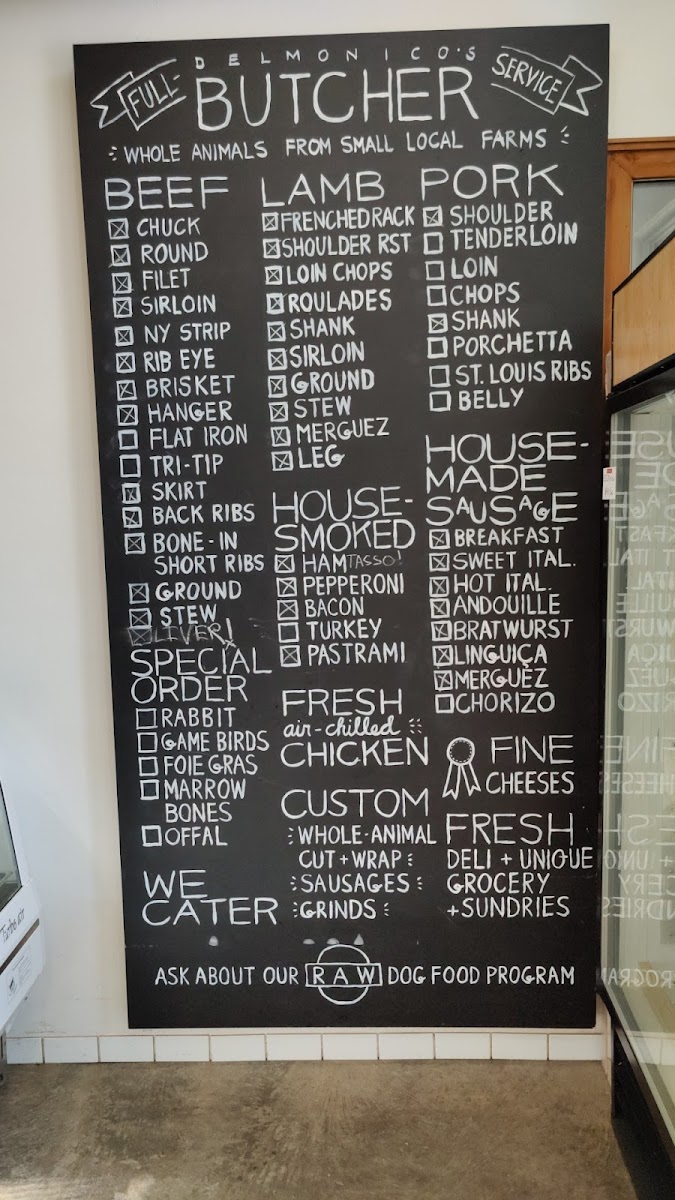 DELMONICO'S
FULL-
BUTCHER
SERVICE
WHOLE ANIMALS FROM SMALL LOCAL FARMS
BEEF
☒ CHUCK
☒ ROUND
☒ FILET
☒ SIRLOIN
☒ NY STRIP
☒ RIB EYE
☒ BRISKET
☒ HANGER
☐ FLAT IRON
☐ TRI-TIP
☒ SKIRT
☒ BACK RIBS
☒ BONE-IN
SHORT RIBS
☒ GROUND
☒ STEW
☒ LIVER!
SPECIAL
ORDER
☐ RABBIT
☐ GAME BIRDS
☐ FOIE GRAS
☐ MARROW
BONES
☐ OFFAL
WE
CATER
LAMB
☒ FRENCHED RACK
☒ SHOULDER RST
☒ LOIN CHOPS
☒ ROULADES
☒ SHANK
☒ SIRLOIN
☒ GROUND
☒ STEW
☒ MERGUEZ
☒ LEG
HOUSE-
SMOKED
☒ HAM TASSO!
☒ PEPPERONI
☒ BACON
☐ TURKEY
☒ PASTRAMI
FRESH
air-chilled
CHICKEN
CUSTOM
WHOLE-ANIMAL
CUT + WRAP
SAUSAGES
GRINDS
PORK
☒ SHOULDER
☐ TENDERLOIN
☐ LOIN
☐ CHOPS
☒ SHANK
☐ PORCHETTA
☐ ST. LOUIS RIBS
☐ BELLY
HOUSE-
MADE
SAUSAGE
☒ BREAKFAST
☒ SWEET ITAL.
☒ HOT ITAL.
☒ ANDOUILLE
☒ BRATWURST
☒ LINGUIÇA
☒ MERGUEZ
☐ CHORIZO
FINE
CHEESES
FRESH
DELI + UNIQUE
GROCERY
+ SUNDRIES
ASK ABOUT OUR RAW DOG FOOD PROGRAM